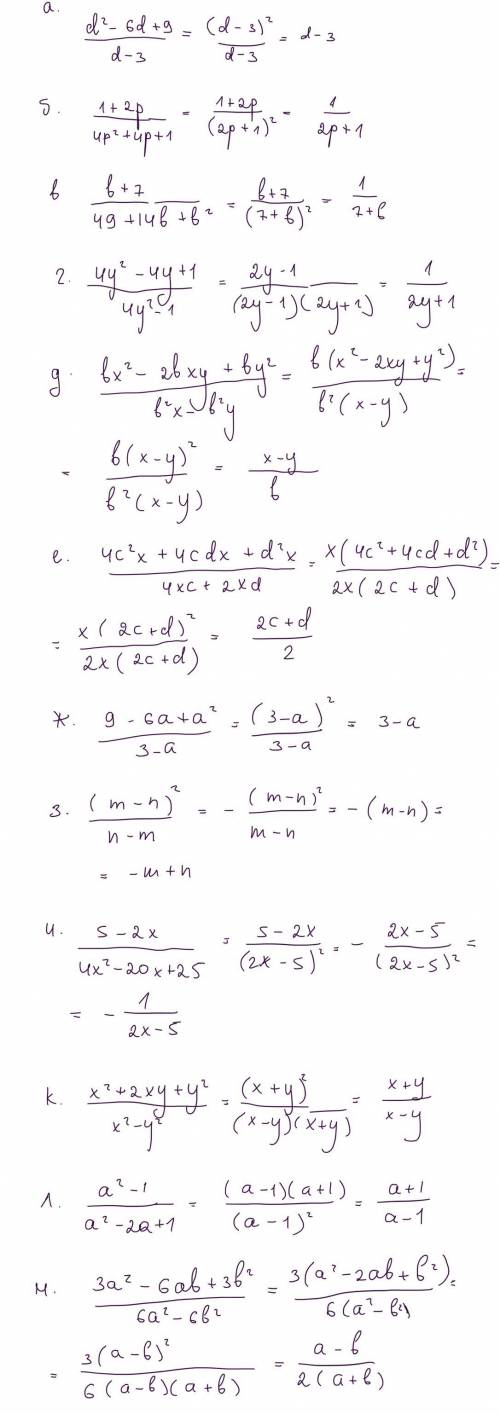 а. (d² - 6d + 9)/(d - 3) = (d - 3)²/(d - 3) = d - 3
б. (1 + 2p)/(4p² + 4p + 1) = (1 + 2p)/(2p + 1)² = 1/(2p + 1)
в (в + 7)/(49 + 14в + в²) = (в + 7)/(7 + в)² = 1/(7 + в)
г. (4y² - 4y + 1)/(4y² - 1) = (2y - 1)/((2y - 1)(2y + 1)) = 1/(2y + 1)
д. (вx² - 2вxy + вy²)/(в²x - в²y) = в(x² - 2xy + y²)/(в²(x - y)) =
= в(x - y)²/(в²(x - y)) = (x - y)/в
е. (4c²x + 4cdx + d²x)/(4xc + 2xd) = x(4c² + 4cd + d²)/(2x(2c + d)) =
= x(2c + d)²/(2x(2c + d)) = (2c + d)/2
ж. (9 - 6a + a²)/(3 - a) = (3 - a)²/(3 - a) = 3 - a
з. (m - n)²/(n - m) = - (m - n)²/(m - n) = - (m - n) =
= - m + n
и. (5 - 2x)/(4x² - 20x + 25) = (5 - 2x)/(2x - 5)² = - (2x - 5)/(2x - 5)² =
= - 1/(2x - 5)
к. (x² + 2xy + y²)/(x² - y²) = (x + y)²/((x - y)(x + y)) = (x + y)/(x - y)
л. (a² - 1)/(a² - 2a + 1) = (a - 1)(a + 1)/(a - 1)² = (a + 1)/(a - 1)
м. (3a² - 6aв + 3в²)/(6a² - 6в²) = 3(a² - 2aв + в²)/(6(a² - в²)) =
= 3(a - в)²/(6(a - в)(a + в)) = (a - в)/(2(a + в))